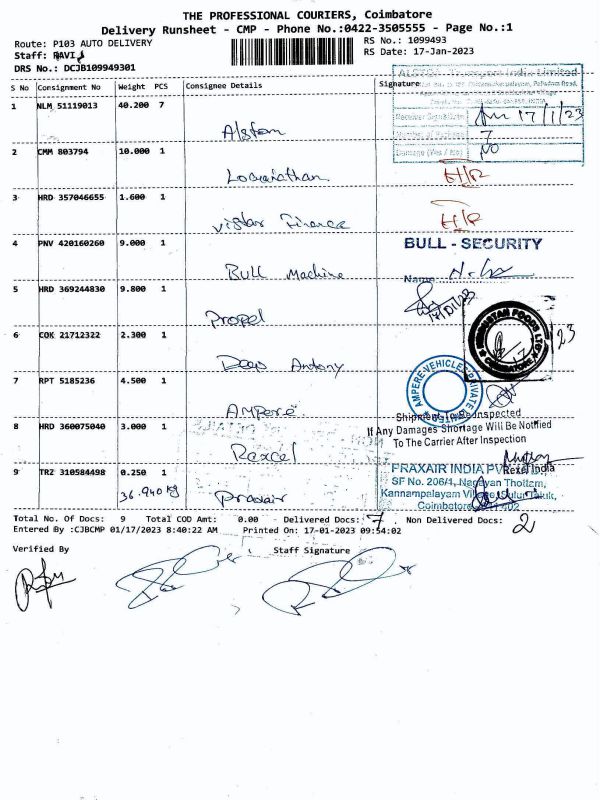 THE PROFESSIONAL COURIERS, Coimbatore
Delivery Runsheet - CMP - Phone No.:0422-3505555 - Page No.:1
Route: P103 AUTO DELIVERY
RS No.: 1099493
Staff: RAVI
RS Date: 17-Jan-2023
DRS No.: DCJB109949301
S No Consignment No Weight PCS Consignee Details Signature
ALSTOM Transport India Limited
1 NLM 51119013 40.200 7
Alstom
Receiver Signature 17/1/23
7
Damage (Yes / No) NO
2 CMM 803794 10.000 1
Loganathan H/R
3 HRD 357046655 1.600 1
Vistar Finance H/R
4 PNV 420160260 9.000 1
BULL - SECURITY
Bull Machine
Name
5 HRD 369244830 9.800 1
17/01/23
Propel
HINDUSTAN FOODS LTD
COIMBATORE
23
6 COK 21712322 2.300 1
Deep Antony
AMPERE VEHICLES PRIVATE
7 RPT 5185236 4.500 1
Ampere
Shipment To Be Inspected
If Any Damages Shortage Will Be Notified
To The Carrier After Inspection
8 HRD 360075040 3.000 1
Raxcel
Rexel India
9 TRZ 310584498 0.250 1
PRAXAIR INDIA PV
SF No. 206/1, Nagayan Thottam,
36.940 kg Praxair
Kannampalayam Village, Sulur Taluk,
Coimbatore
Total No. Of Docs: 9 Total COD Amt: 0.00 Delivered Docs: 7 Non Delivered Docs: 2
Entered By :CJBCMP 01/17/2023 8:40:22 AM Printed On: 17-01-2023 09:54:02
Verified By Staff Signature